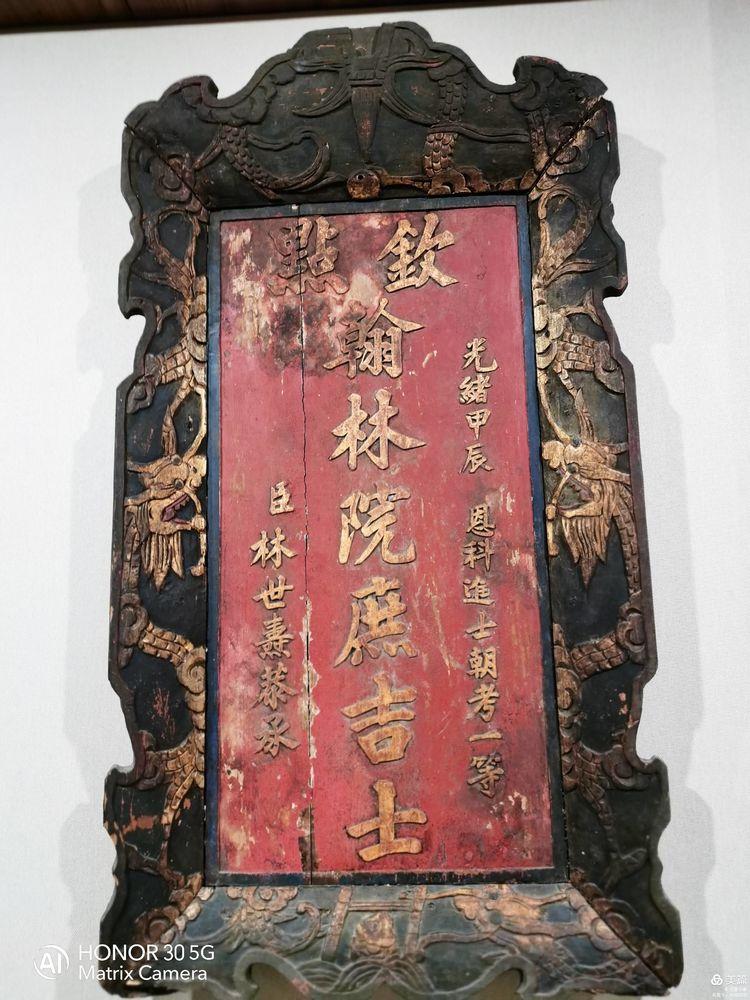 欽點
翰林院庶吉士
光緒甲辰 恩科進士朝考一等
臣林世燾恭承
HONOR 30 5G
Matrix Camera
AI
美篇